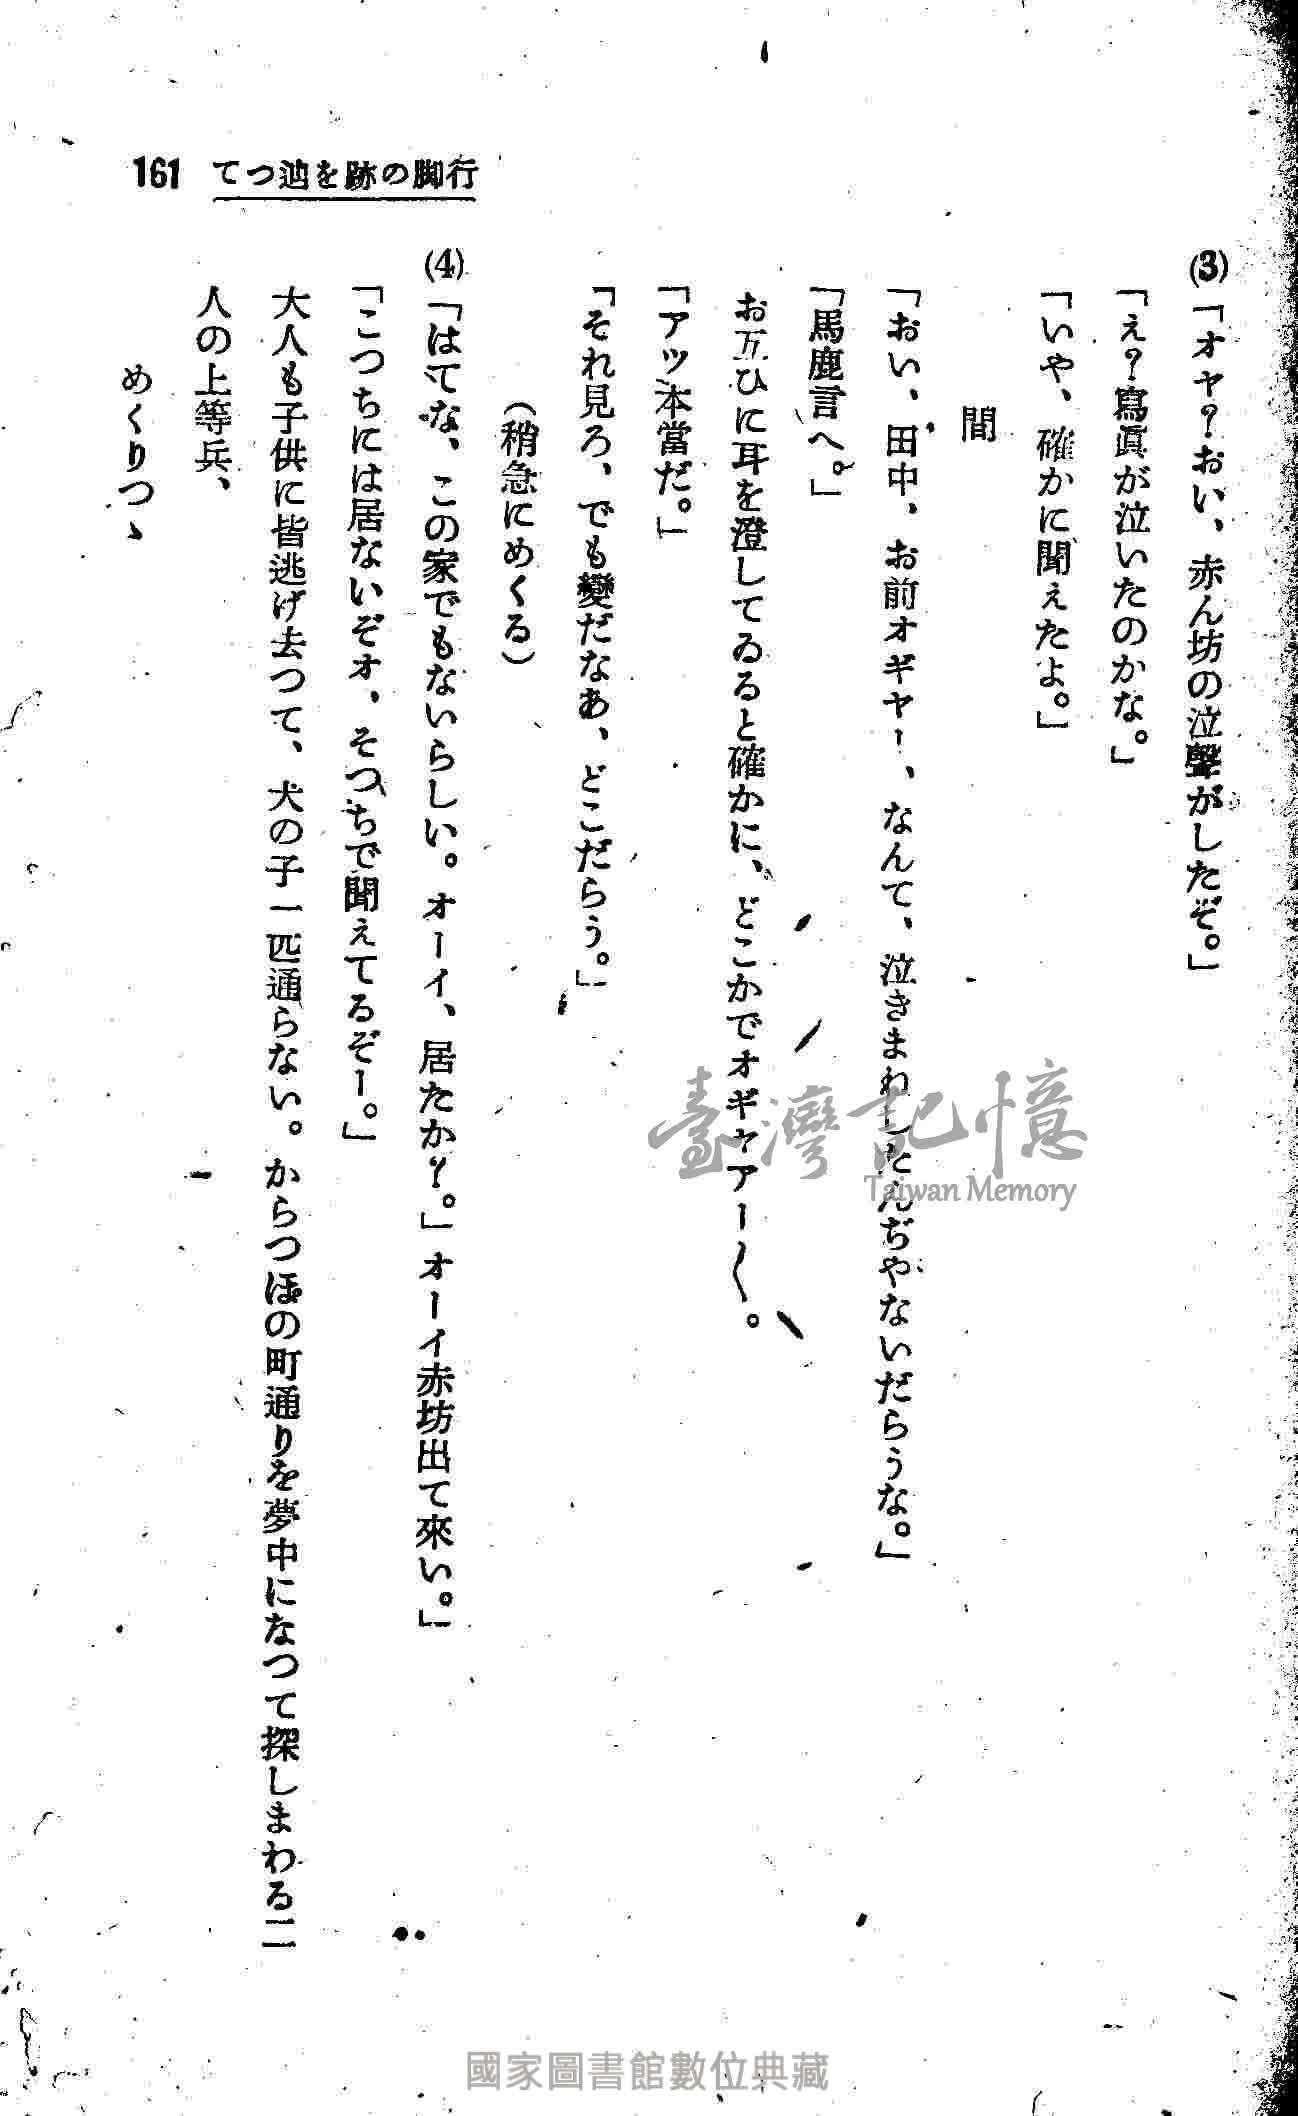 161 てつ辿を跡の脚行
(3)「オヤ？おい、赤ん坊の泣聲がしたぞ。」
「え？寫眞が泣いたのかな。」
「いや、確かに聞えたよ。」
間
「おい、田中、お前オギヤー、なんて、泣きまねしたんぢやないだらうな。」
「馬鹿言へ。」
お互ひに耳を澄してゐると確かに、どこかでオギヤアー〱。
「アッ本當だ。」
「それ見ろ、でも變だなあ、どこだらう。」
（稍急にめくる）
(4)「はてな、この家でもないらしい。オーイ、居たか？。」オーイ赤坊出て來い。」
「こつちには居ないぞオ、そつちで聞えてるぞー。」
大人も子供に皆逃げ去つて、犬の子一匹通らない。からつぽの町通りを夢中になつて探しまわる二
人の上等兵、
めくりつゝ
臺灣記憶
Taiwan Memory
國家圖書館數位典藏